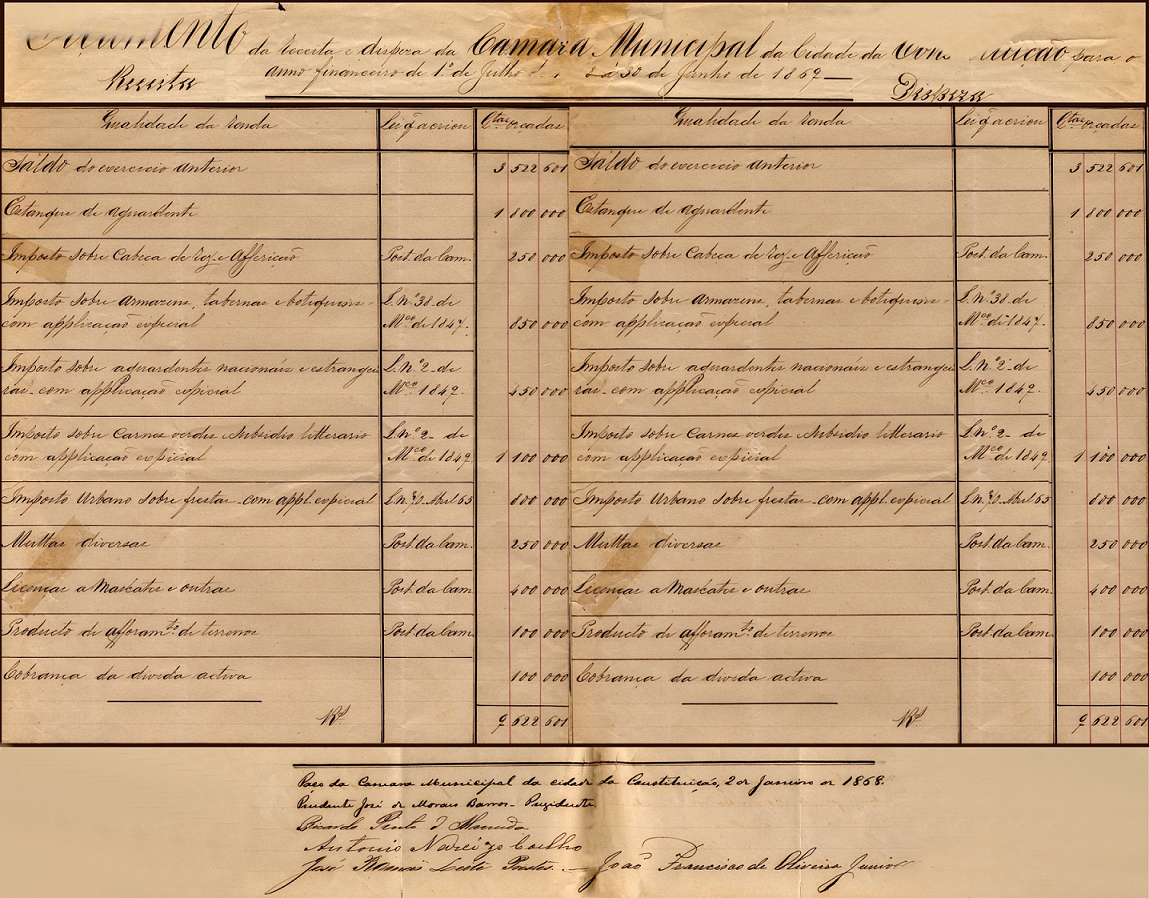 Orçamento da receita e dispeza da Camara Municipal da Cidade da Constituição para o
anno financeiro de 1º de Julho a 30 de Junho de 1869
Receita
Dispeza
Qualidade da renda
Lei q̃ a creou
Qtas orçadas
Saldo do exercicio anterior
3 522 601
Estanque de aguardente
1 800 000
Imposto sobre Cabeca de rez e Affericaõ
Post. da Cam.
250 000
Imposto sobre armazens, tabernas e botiquins
com applicaçaõ expicial
L. nº 38 de
Mço de 1847.
850 000
Imposto sobre aguardentes nacionais e estrangei
ras com applicaçaõ expicial
L. Nº 2 de
Mço 1847.
450 000
Imposto sobre Carnes verdes e Subsidio litterario
com applicaçaõ expicial
L. Nº 2 de
Mço de 1847
1 100 000
Imposto Urbano sobre frestas com appl. expicial
Abril 65
800 000
Multtas diversas
Post. da Cam.
250 000
Licenças a Mascates e outras
Post. da Cam
400 000
Producto de afforamtos de terrenos
Post. da Cam
100 000
Cobranca da divida activa
100 000
Rs
9 622 601
Qualidade da renda
Lei q̃ a creou
Qtas orçadas
Saldo do exercicio anterior
3 522 601
Estanque de aguardente
1 800 000
Imposto sobre Cabeca de rez e Affericaõ
Post. da Cam.
250 000
Imposto sobre armazens, tabernas e botiquins
com applicaçaõ expicial
L. nº 38 de
Mço de 1847.
850 000
Imposto sobre aguardentes nacionais e estrangei
ras com applicaçaõ expicial
L. Nº 2 de
Mço 1847.
450 000
Imposto sobre Carnes verdes e Subsidio litterario
com applicaçaõ expicial
L. Nº 2 de
Mço de 1847
1 100 000
Imposto Urbano sobre frestas com appl. expicial
Abril 65
800 000
Multtas diversas
Post. da Cam.
250 000
Licenças a Mascates e outras
Post. da Cam
400 000
Producto de afforamtos de terrenos
Post. da Cam
100 000
Cobranca da divida activa
100 000
Rs
9 622 601
Paço da Camara Municipal da cidade da Constituição, 2 de Janeiro de 1868.
Prudente José de Moraes Barros - Prezidente
Ricardo Pinto d'Almeida
Antonio Narcizo Coelho
José Leite João Francisco de Oliveira Junior